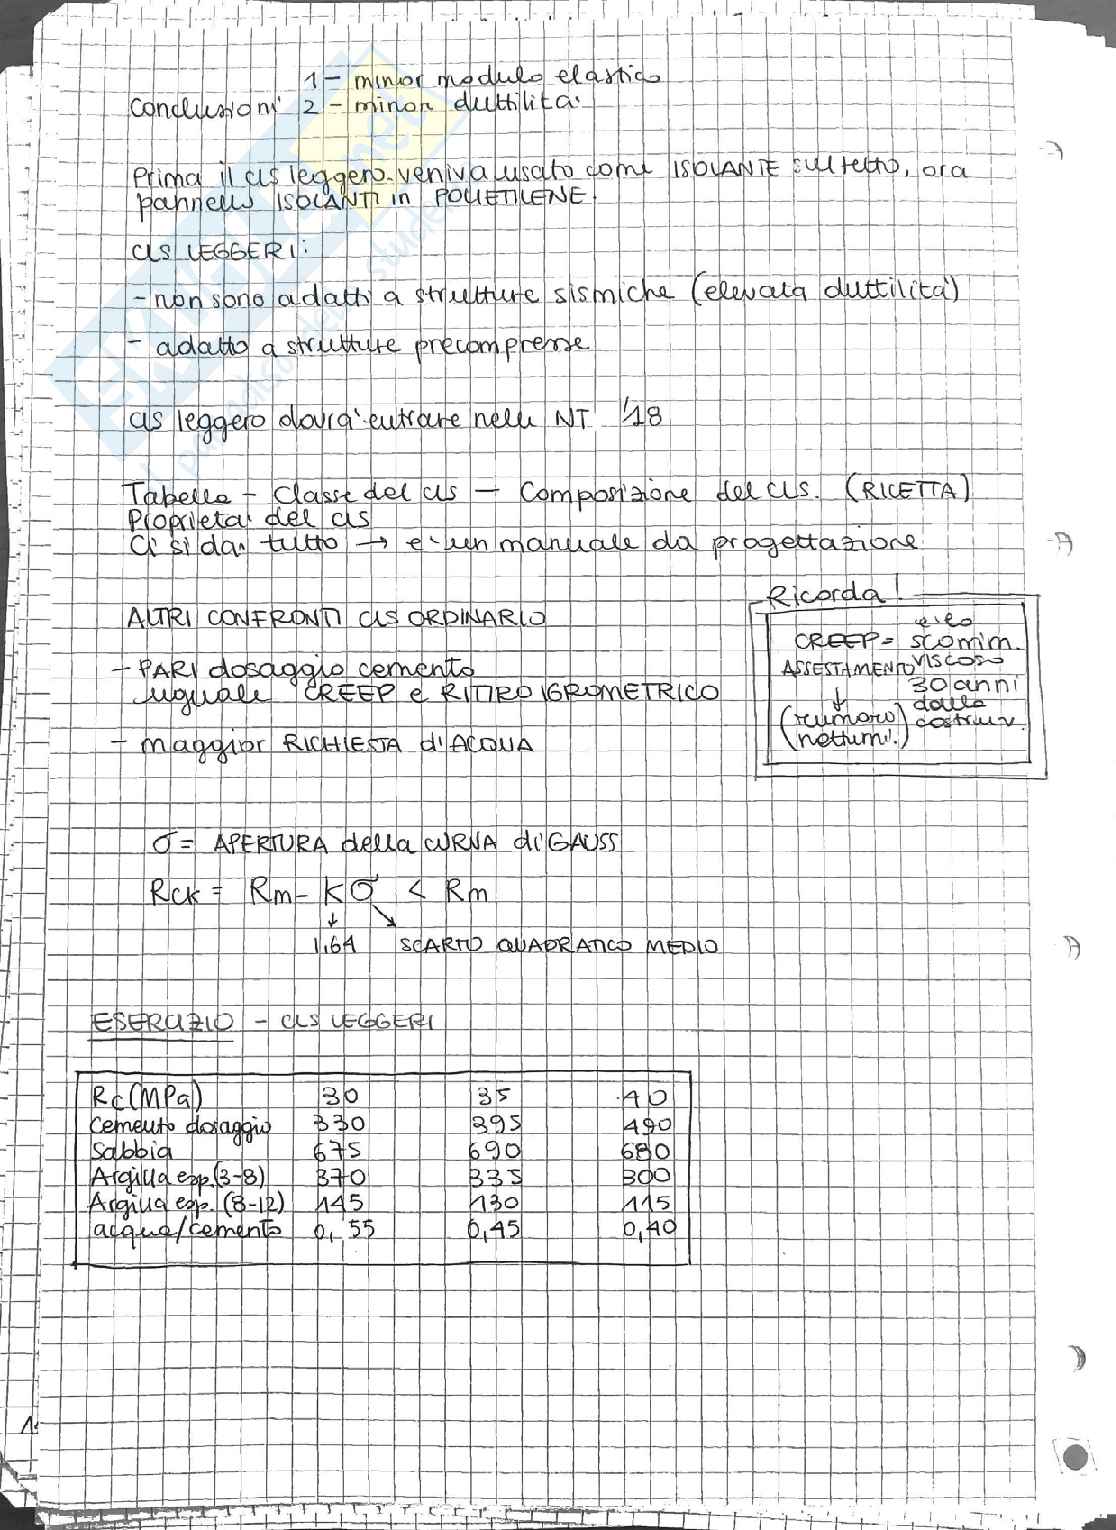 1 - minor modulo elastico
Conclusioni 2 - minor duttilità
Prima il cls leggero veniva usato come ISOLANTE sul tetto, ora
pannelli ISOLANTI in POLIETILENE.
CLS LEGGERI:
- non sono adatti a strutture sismiche (elevata duttilità)
- adatto a strutture precompresse
cls leggero dovrà entrare nelle NT '18
Tabelle - Classe del cls - Composizione del cls. (RICETTA)
Proprietà del cls
Ci si dà tutto → è un manuale da progettazione
Ricorda!
CREEP = scorrim.
ASSESTAMENTO viscoso
30 anni
↓ dalla
(rumore) costruz.
(notturni.)
ALTRI CONFRONTI CLS ORDINARIO
- PARI dosaggio cemento
uguale CREEP e RITIRO IGROMETRICO
- maggior RICHIESTA d'ACQUA
σ = APERTURA della CURVA di GAUSS
Rck = Rm - Kσ < Rm
1,64 SCARTO QUADRATICO MEDIO
ESERCIZIO - CLS LEGGERI
Rc (MPa) 30 35 40
Cemento dosaggio 330 395 490
Sabbia 675 690 680
Argilla esp. (3-8) 370 335 300
Argilla esp. (8-12) 145 130 115
acqua/cemento 0,55 0,45 0,40